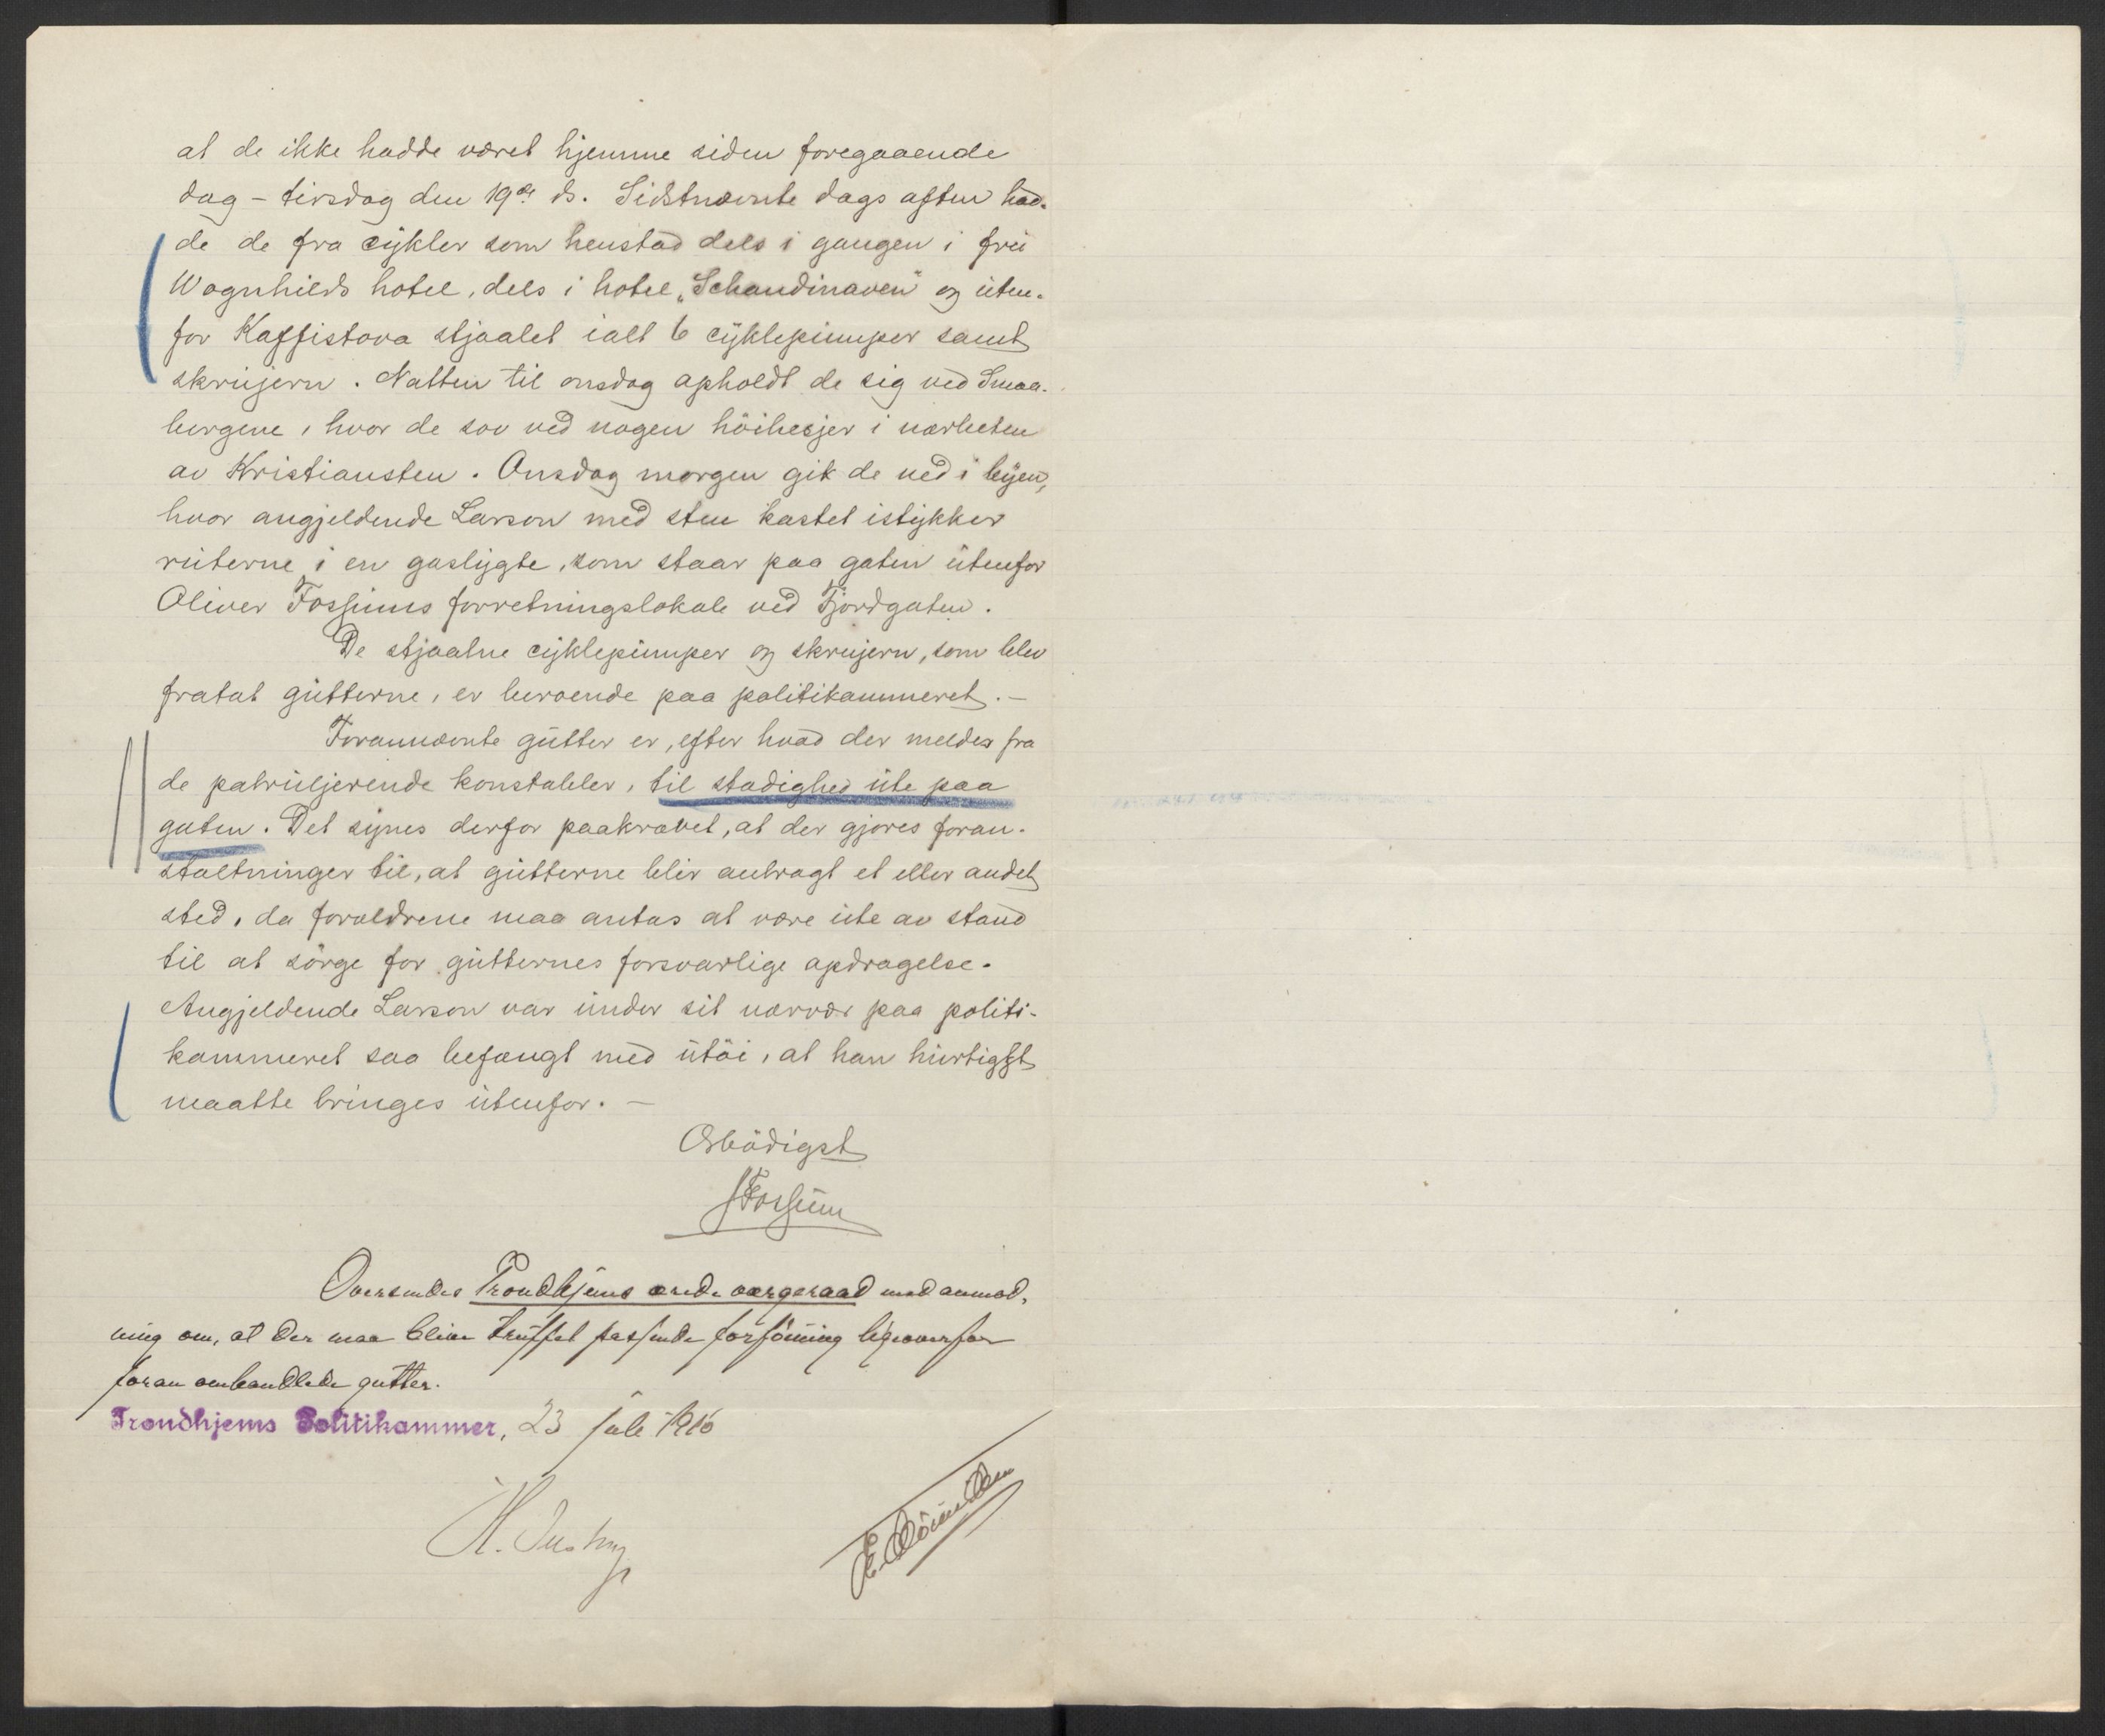 at de ikke hadde været hjemme siden foregaaende
dag - tirsdag den 19de ds. Sidstnævnte dags aften had-
de de fra cykler som henstod dels i gangen i fru
Wognhilds hotel, dels i hotel "Schandinaven" og uten-
for Kaffistova stjaalet ialt 6 cyklepumper samt
skrujern. Natten til onsdag opholdt de sig ved Smaa-
bergene, hvor de sov ved nogen höihesjer i nærheten
av Kristiansten. Onsdag morgen gik de ned i byen,
hvor angjeldende Larson med sten kastet istykker
ruterne i en gaslygte, som staar paa gaten utenfor
Oliver Fossums forretningslokale ved Fjordgaten.
De stjaalne cyklepumper og skrujern, som blev
fratat gutterne, er beroende paa politikammeret. -
Forannævnte gutter er, efter hvad der meldes fra
de patruljerende konstabler, til stadighed ute paa
gaten. Det synes derfor paakrævet, at der gjores foran-
staltninger til, at gutterne blir anbragt et eller andet
sted, da forældrene maa antas at være ute av stand
til at sörge for gutternes forsvarlige opdragelse.
Angjeldende Larson var under sit nærvær paa politi-
kammeret saa befængt med utöi, at han hurtigst
maatte bringes utenfor. -
Ærbödigst
Fossum
Oversendes Trondhjems vergeraad med anmod-
ning om, at der maa blive truffet passende forföining ligeoverfor
foran omhandlede gutter.
Trondhjems Politikammer, 23 juli 1910